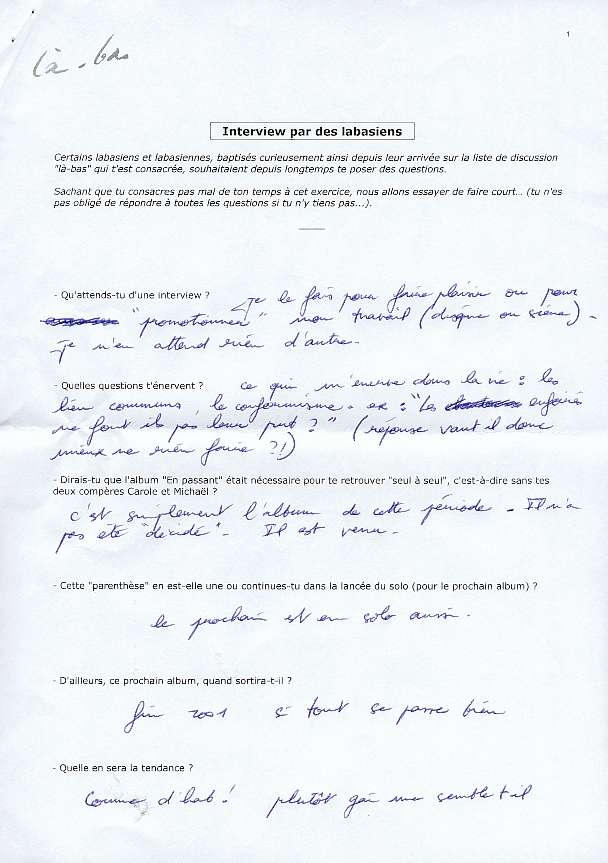 1
là-bas
Interview par des labasiens
Certains labasiens et labasiennes, baptisés curieusement ainsi depuis leur arrivée sur la liste de discussion
"là-bas" qui t'est consacrée, souhaitaient depuis longtemps te poser des questions.
Sachant que tu consacres pas mal de ton temps à cet exercice, nous allons essayer de faire court… (tu n'es
pas obligé de répondre à toutes les questions si tu n'y tiens pas...).
- Qu'attends-tu d'une interview ?
Je le fais pour faire plaisir ou pour
"promotionner" mon travail (disque ou scène).
Je n'en attend rien d'autre.
- Quelles questions t'énervent ?
ce qui m'énerve dans la vie : les
lieu communs, le conformisme. ex : "Les enfoirés
ne font ils pas leur pub ?" (réponse vaut il donc
mieux ne rien faire ?!)
- Dirais-tu que l'album "En passant" était nécessaire pour te retrouver "seul à seul", c'est-à-dire sans tes
deux compères Carole et Michaël ?
c'est simplement l'album de cette période. Il n'a
pas été "décidé". Il est venu.
- Cette "parenthèse" en est-elle une ou continues-tu dans la lancée du solo (pour le prochain album) ?
le prochain est en solo aussi.
- D'ailleurs, ce prochain album, quand sortira-t-il ?
fin 2001 si tout se passe bien
- Quelle en sera la tendance ?
Comme d'hab ! plutôt gai me semble t-il